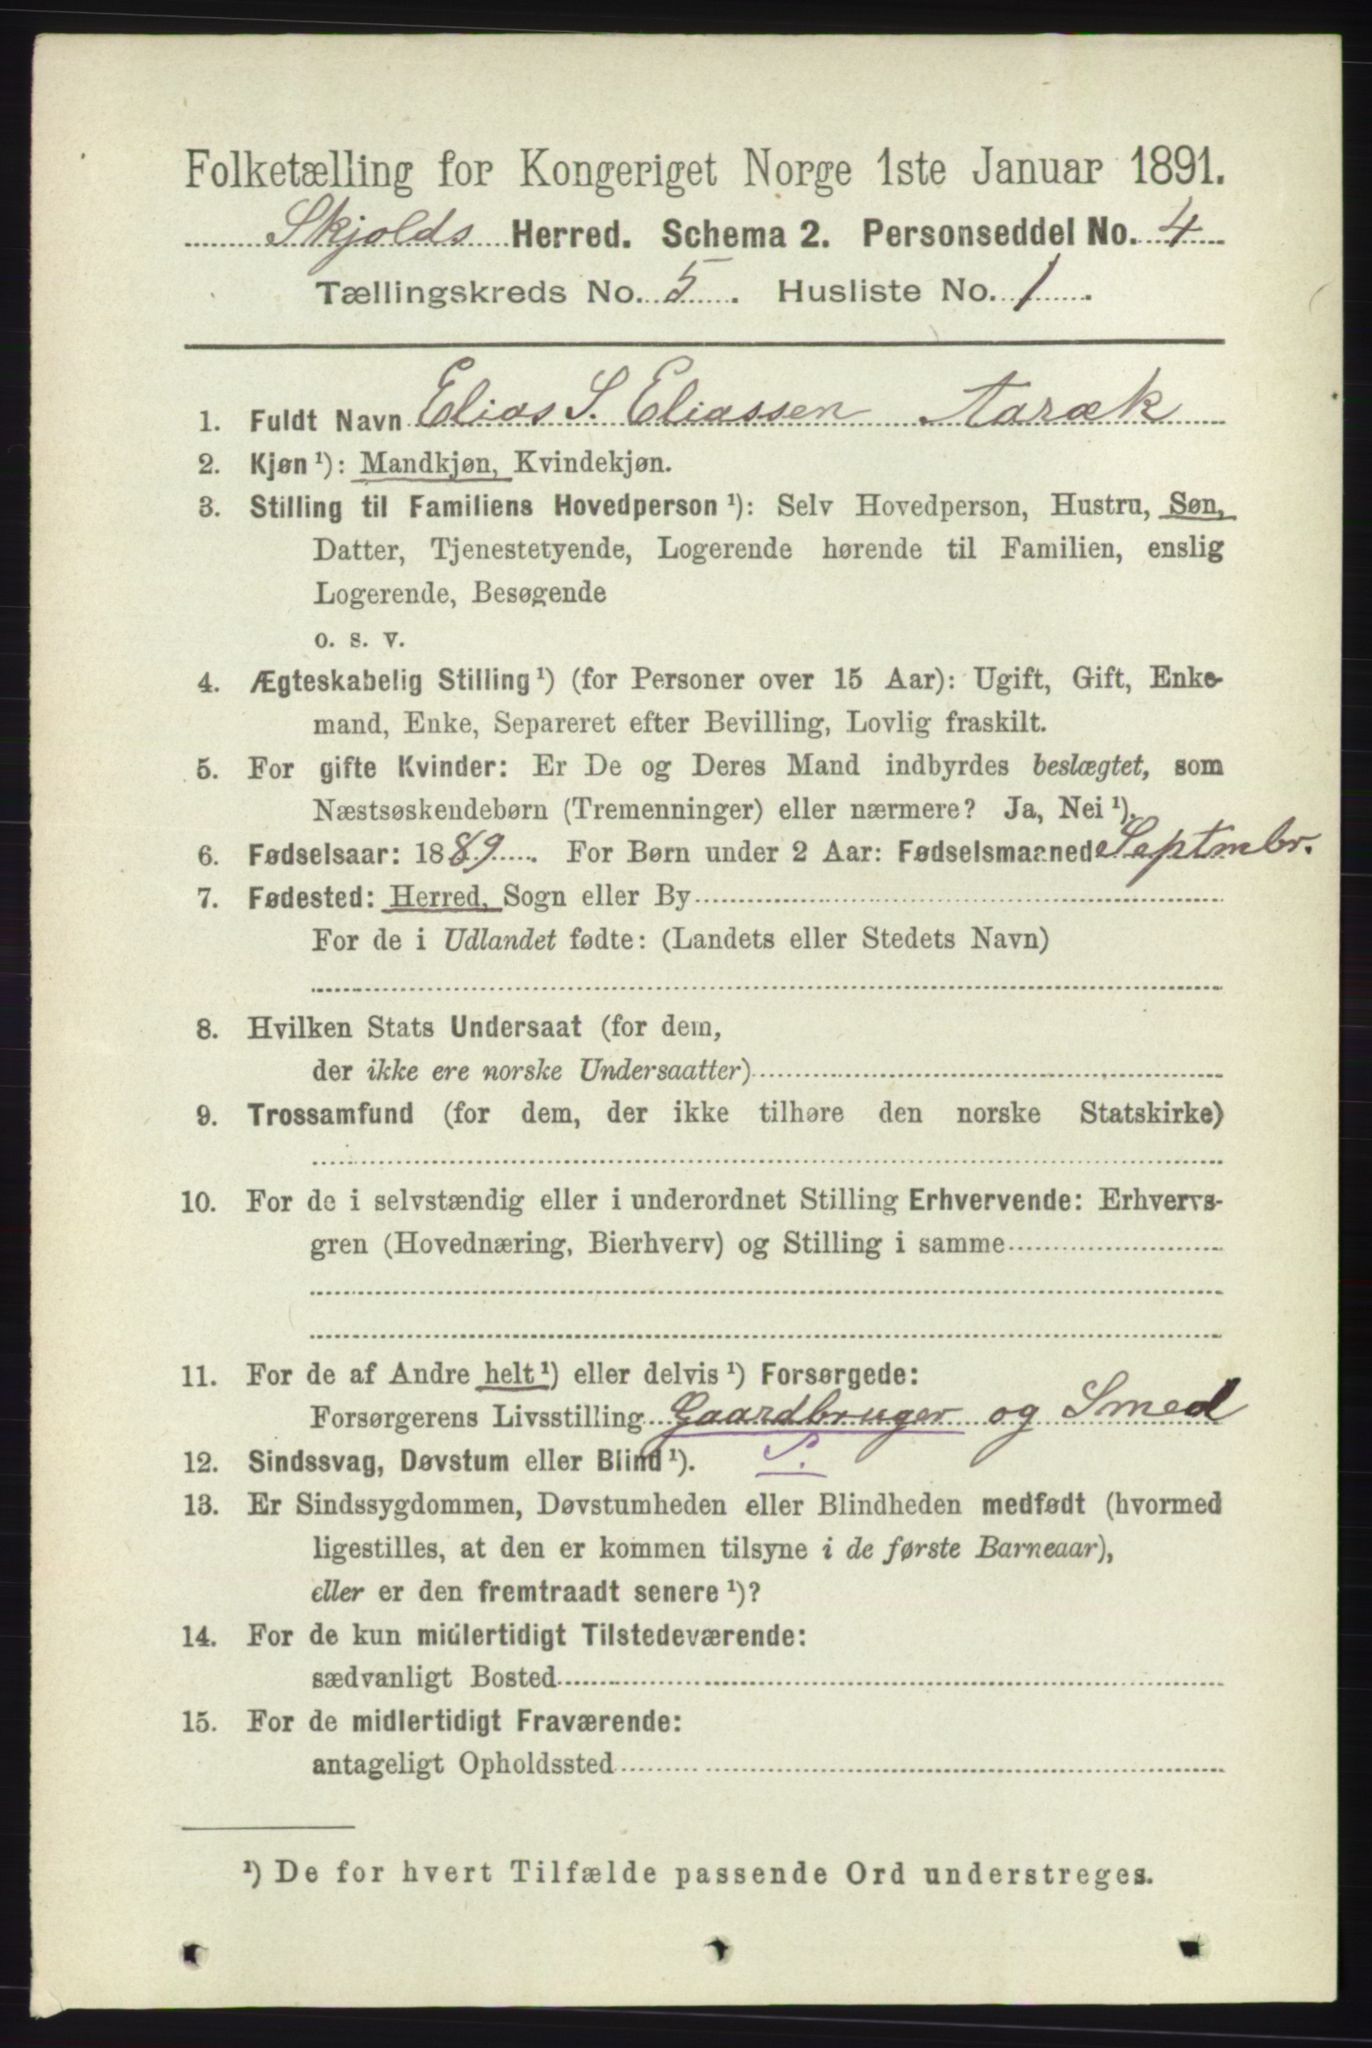 Folketælling for Kongeriget Norge 1ste Januar 1891.
Skjolds Herred. Schema 2. Personseddel No. 4
Tællingskreds No. 5. Husliste No. 1.
1. Fuldt Navn Elias S. Eliassen Aaræk
2. Kjøn¹): Mandkjøn, Kvindekjøn.
3. Stilling til Familiens Hovedperson¹): Selv Hovedperson, Hustru, Søn,
Datter, Tjenestetyende, Logerende hørende til Familien, enslig
Logerende, Besøgende
o. s. v.
4. Ægteskabelig Stilling¹) (for Personer over 15 Aar): Ugift, Gift, Enke-
mand, Enke, Separeret efter Bevilling, Lovlig fraskilt.
5. For gifte Kvinder: Er De og Deres Mand indbyrdes beslægtet, som
Næstsøskendebørn (Tremenninger) eller nærmere? Ja, Nei¹).
6. Fødselsaar: 1889. For Børn under 2 Aar: Fødselsmaaned Septmbr.
7. Fødested: Herred, Sogn eller By
For de i Udlandet fødte: (Landets eller Stedets Navn)
8. Hvilken Stats Undersaat (for dem,
der ikke ere norske Undersaatter)
9. Trossamfund (for dem, der ikke tilhøre den norske Statskirke)
10. For de i selvstændig eller i underordnet Stilling Erhvervende: Erhvervs-
gren (Hovednæring, Bierhverv) og Stilling i samme
11. For de af Andre helt¹) eller delvis¹) Forsørgede:
Forsørgerens Livsstilling Gaardbruger og Smed
S.
12. Sindssvag, Døvstum eller Blind¹).
13. Er Sindssygdommen, Døvstumheden eller Blindheden medfødt (hvormed
ligestilles, at den er kommen tilsyne i de første Barneaar),
eller er den fremtraadt senere¹)?
14. For de kun midlertidigt Tilstedeværende:
sædvanligt Bosted
15. For de midlertidigt Fraværende:
antageligt Opholdssted
¹) De for hvert Tilfælde passende Ord understreges.